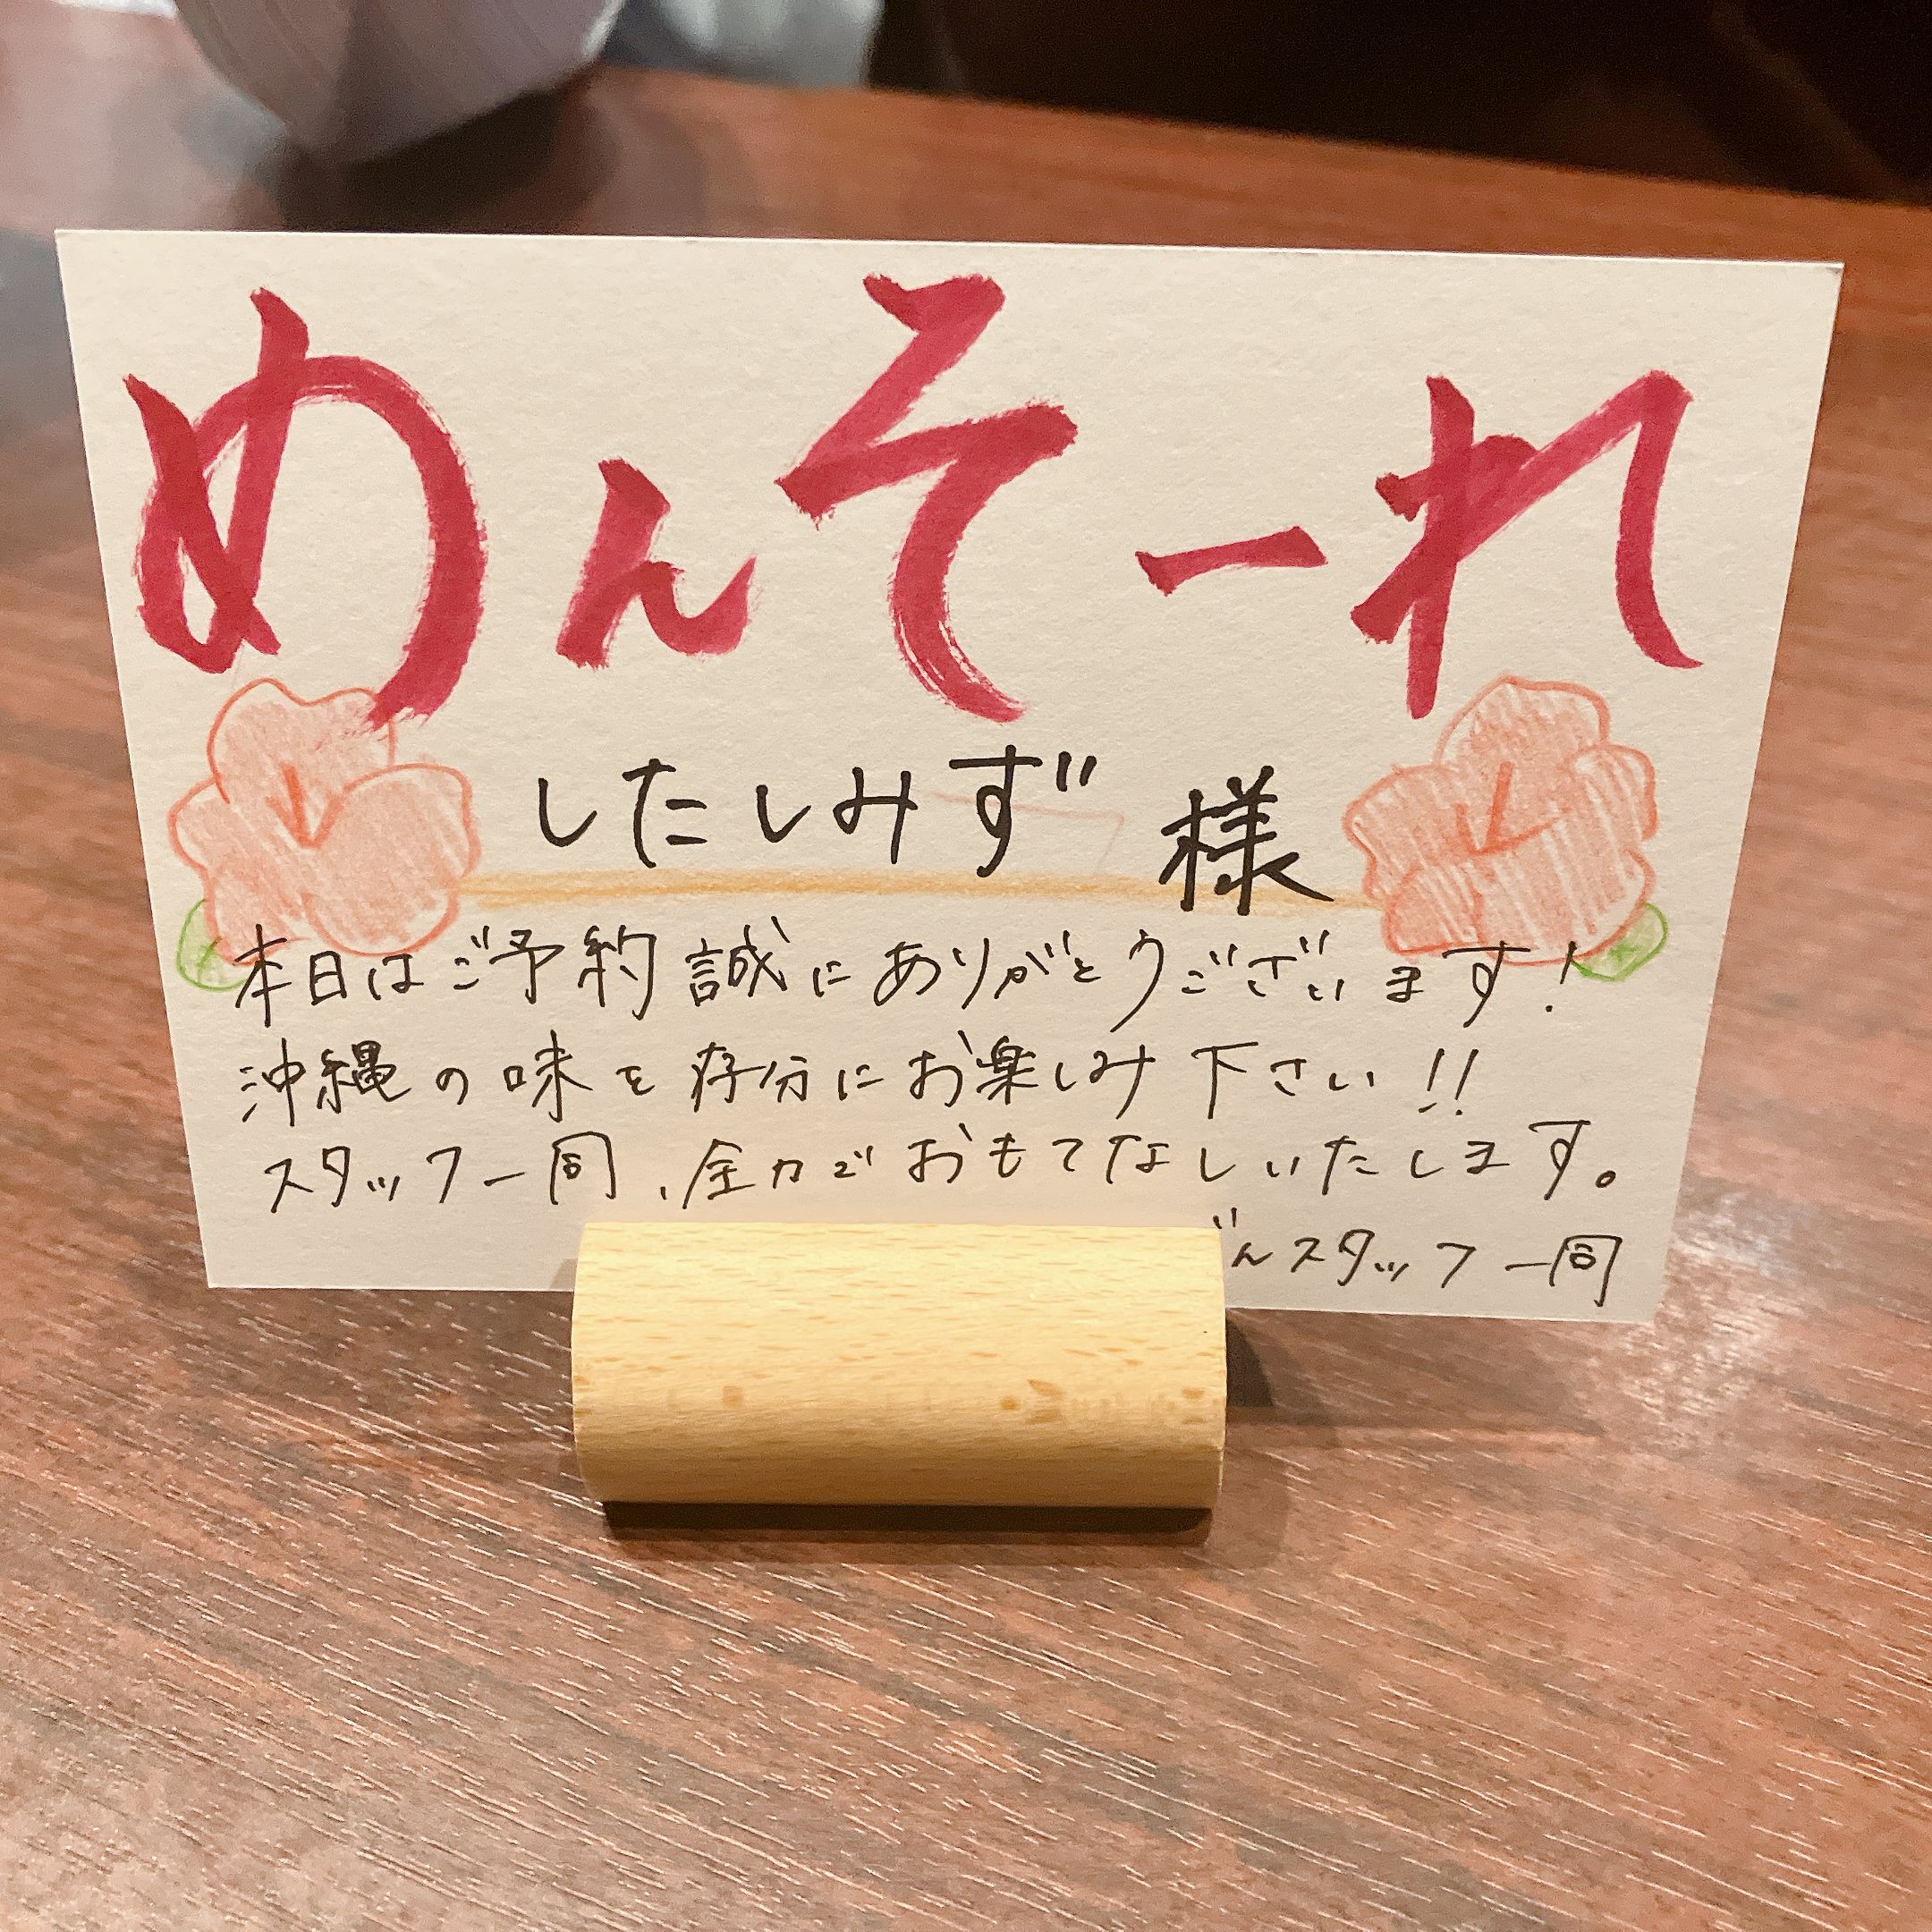 めんそーれ
したしみず 様
本日はご予約誠にありがとうございます!
沖縄の味を存分にお楽しみ下さい!!
スタッフ一同、全力でおもてなしいたします。
んスタッフ一同